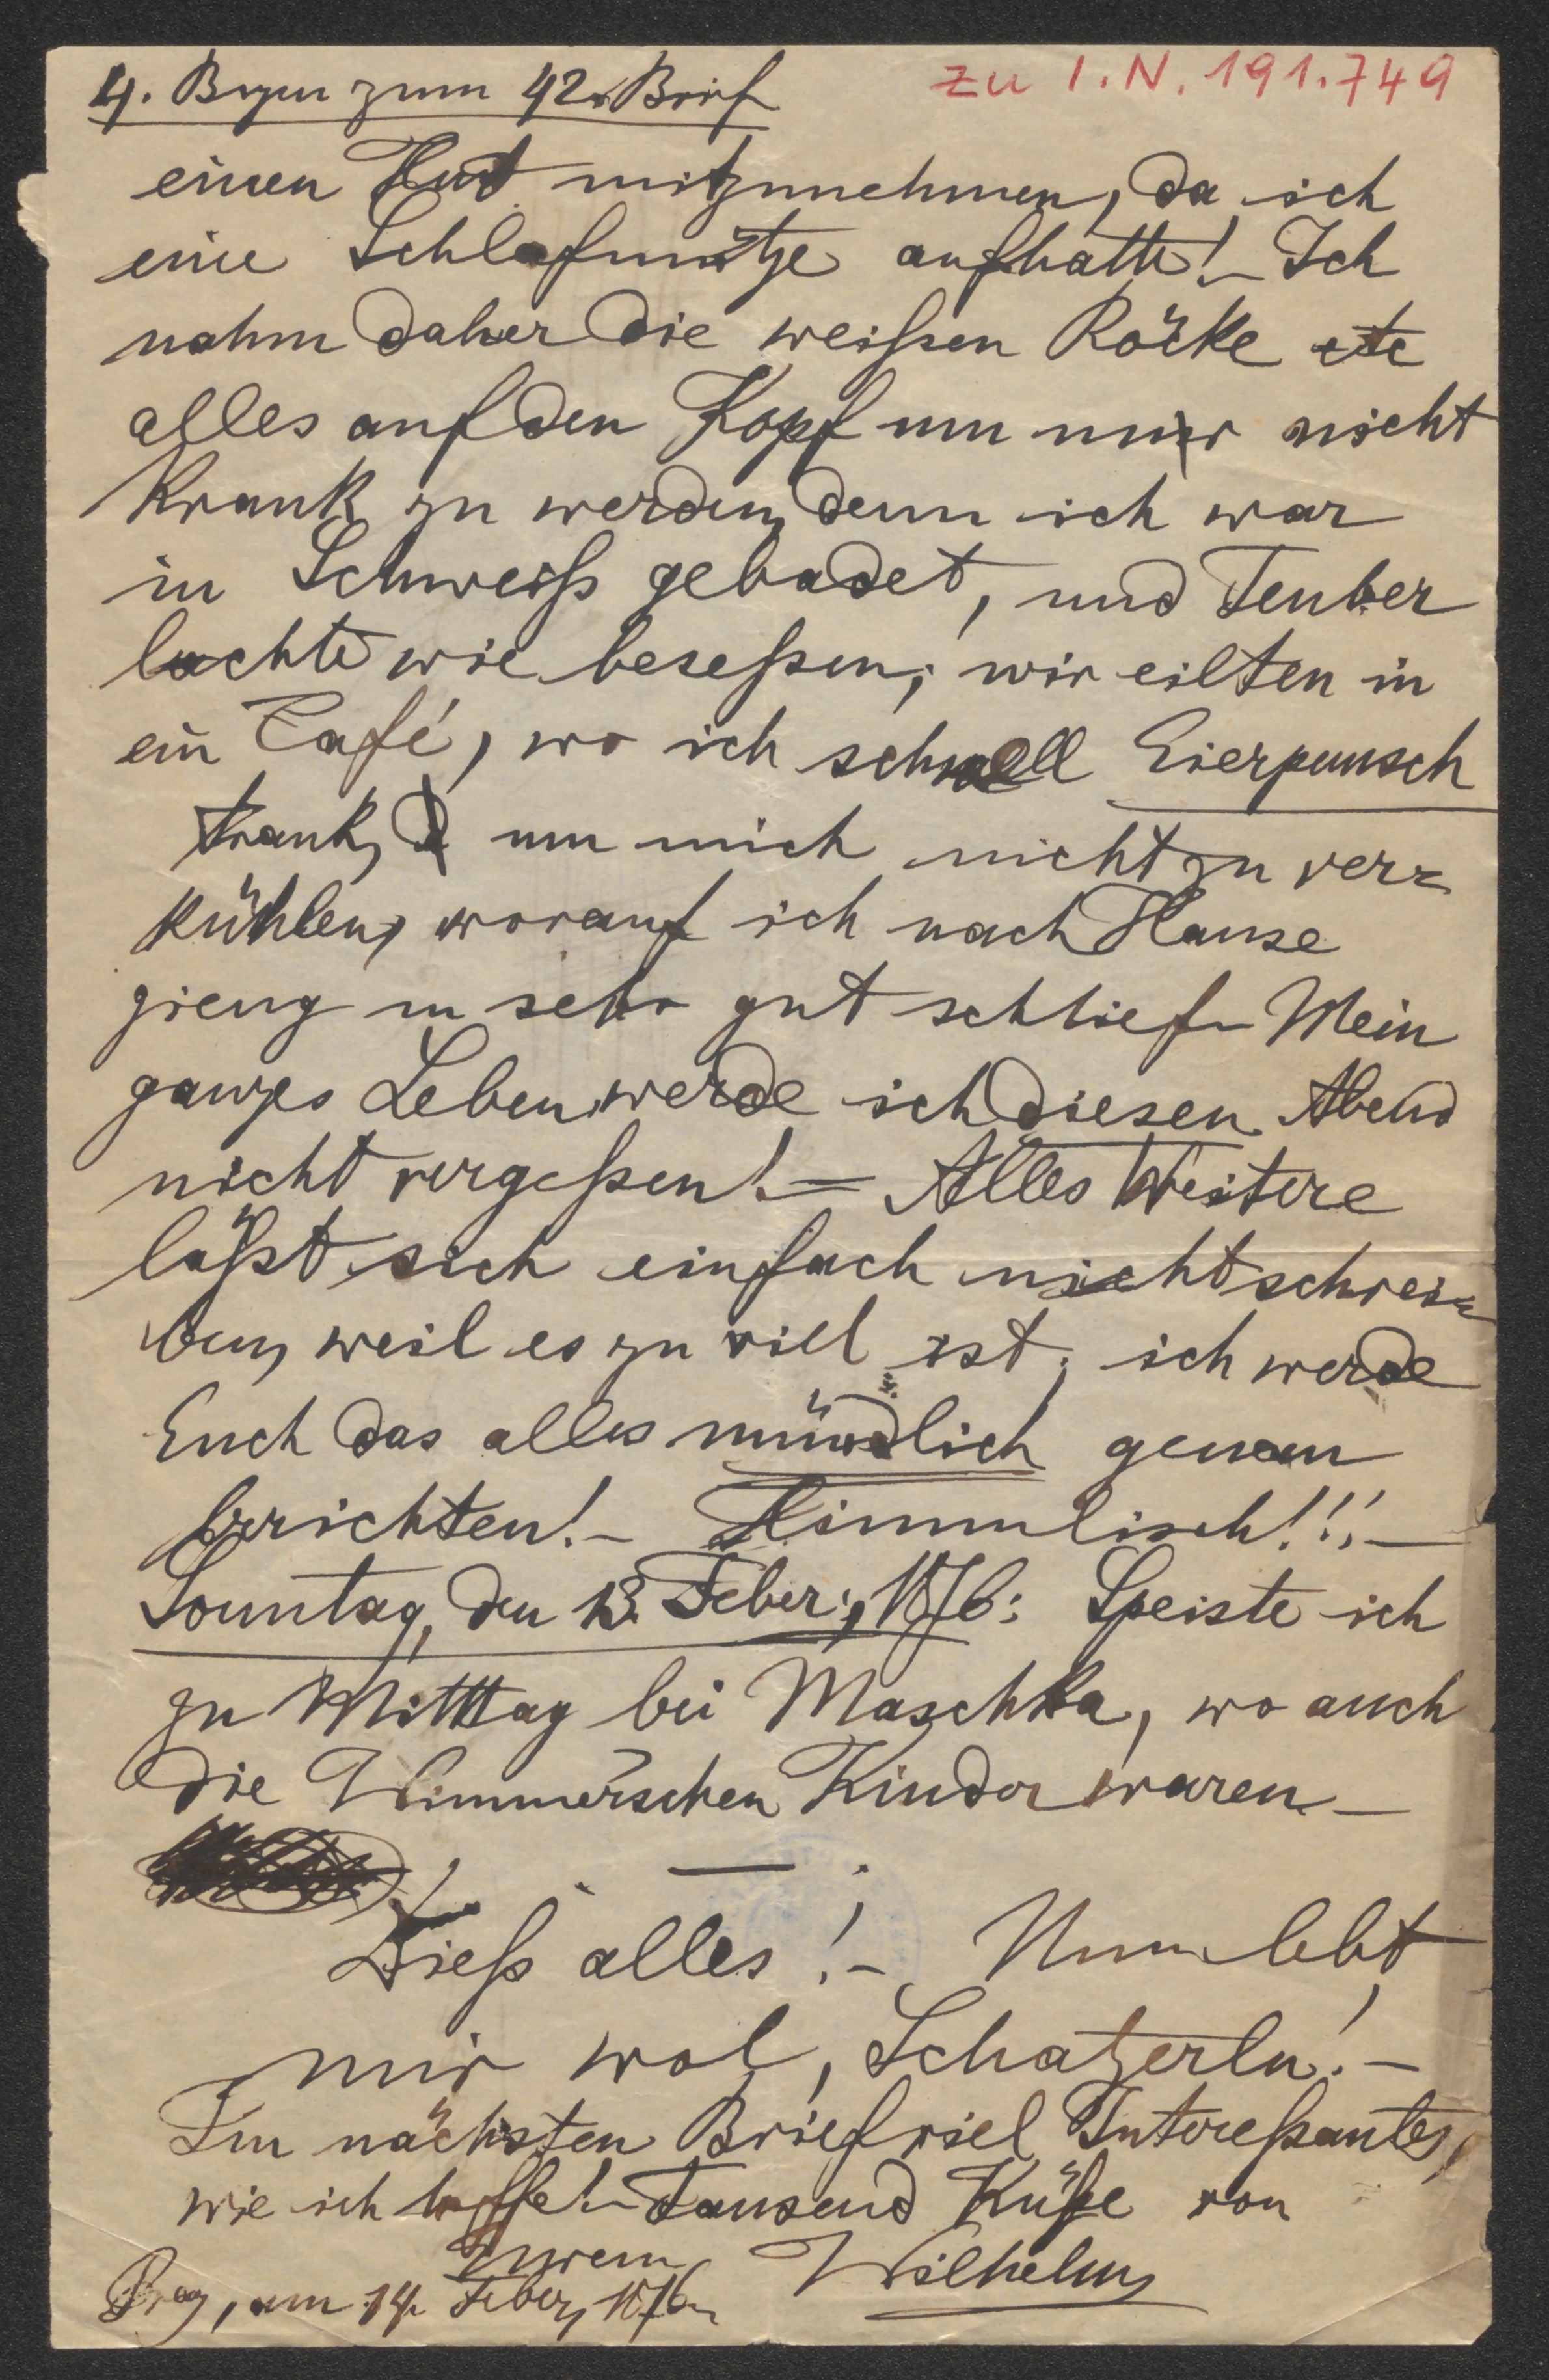 4. Bogen zum 42. Brief
zu I.N. 191.749
einen Hut mitzunehmen, da ich
eine Schlafmütze aufhatte! – Ich
nahm daher die weißen Röcke etc
alles auf den Kopf um nur nicht
krank zu werden, denn ich war
in Schweiß gebadet, und Teuber
lachte wie beseßen; wir eilten in
ein Café, wo ich schnell Eierpunsch
trank, um mich nicht zu ver=
kühlen, worauf ich nach Hause
gieng u sehr gut schlief – Mein
ganzes Leben werde ich diesen Abend
nicht vergeßen! = Alles Weitere
läßt sich einfach nicht schrei=
ben, weil es zu viel ist; ich werde
Euch das alles mündlich genau
berichten! – Himmlisch!!! –
Sonntag, den 13. Feber, 1876: Speiste ich
zu Mitttag bei Maschka, wo auch
die Wimmer'schen Kinder waren –
Dieß alles! – Nun lebt
mir wol, Schatzerln! –
Im nächsten Brief viel Intereßantes,
wie ich hoffe! – Tausend Küße von
Eurem Wilhelm
Prag, am 14. Feber, 1876